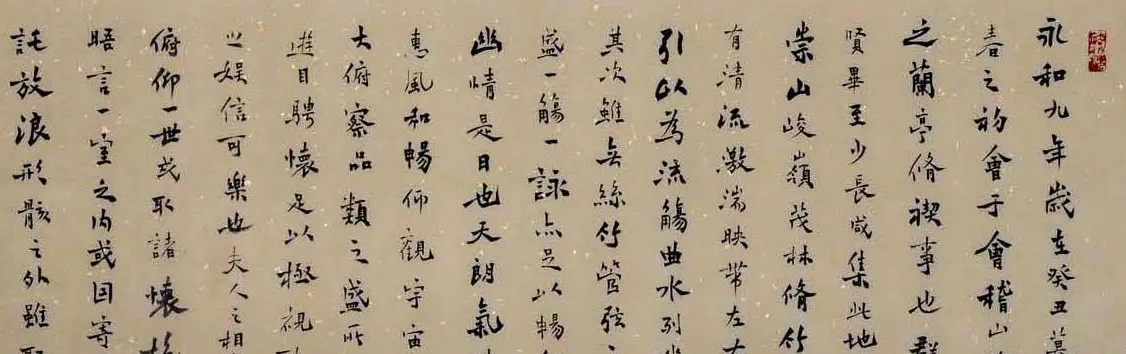 永和九年歲在癸丑暮
春之初會于會稽山
之蘭亭脩禊事也群
賢畢至少長咸集此地
崇山峻嶺茂林脩竹
有清流激湍映帶左右
引以為流觴曲水列坐
其次雖無絲竹管弦之
盛一觴一詠亦足以暢
幽情是日也天朗氣
惠風和暢仰觀宇宙
大俯察品類之盛所
遊目騁懷足以極視
之娛信可樂也夫人之相
俯仰一世或取諸懷抱
晤言一室之內或因寄
託放浪形骸之外雖